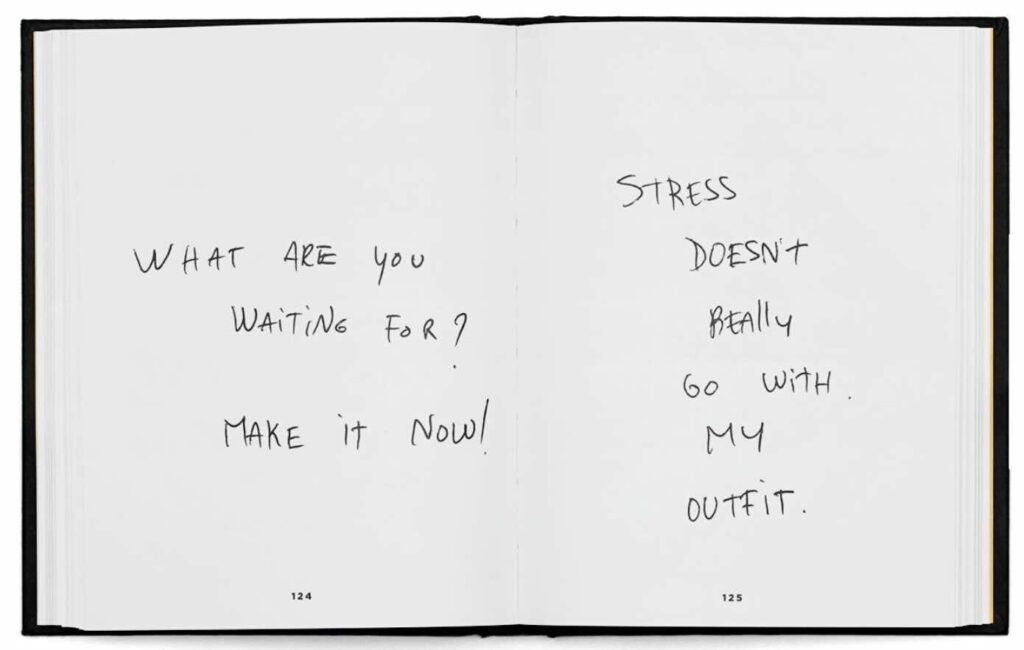 WHAT ARE YOU
WAITING FOR?
MAKE IT NOW!
124
STRESS
DOESN'T
REALLY
GO WITH.
MY
OUTFIT.
125